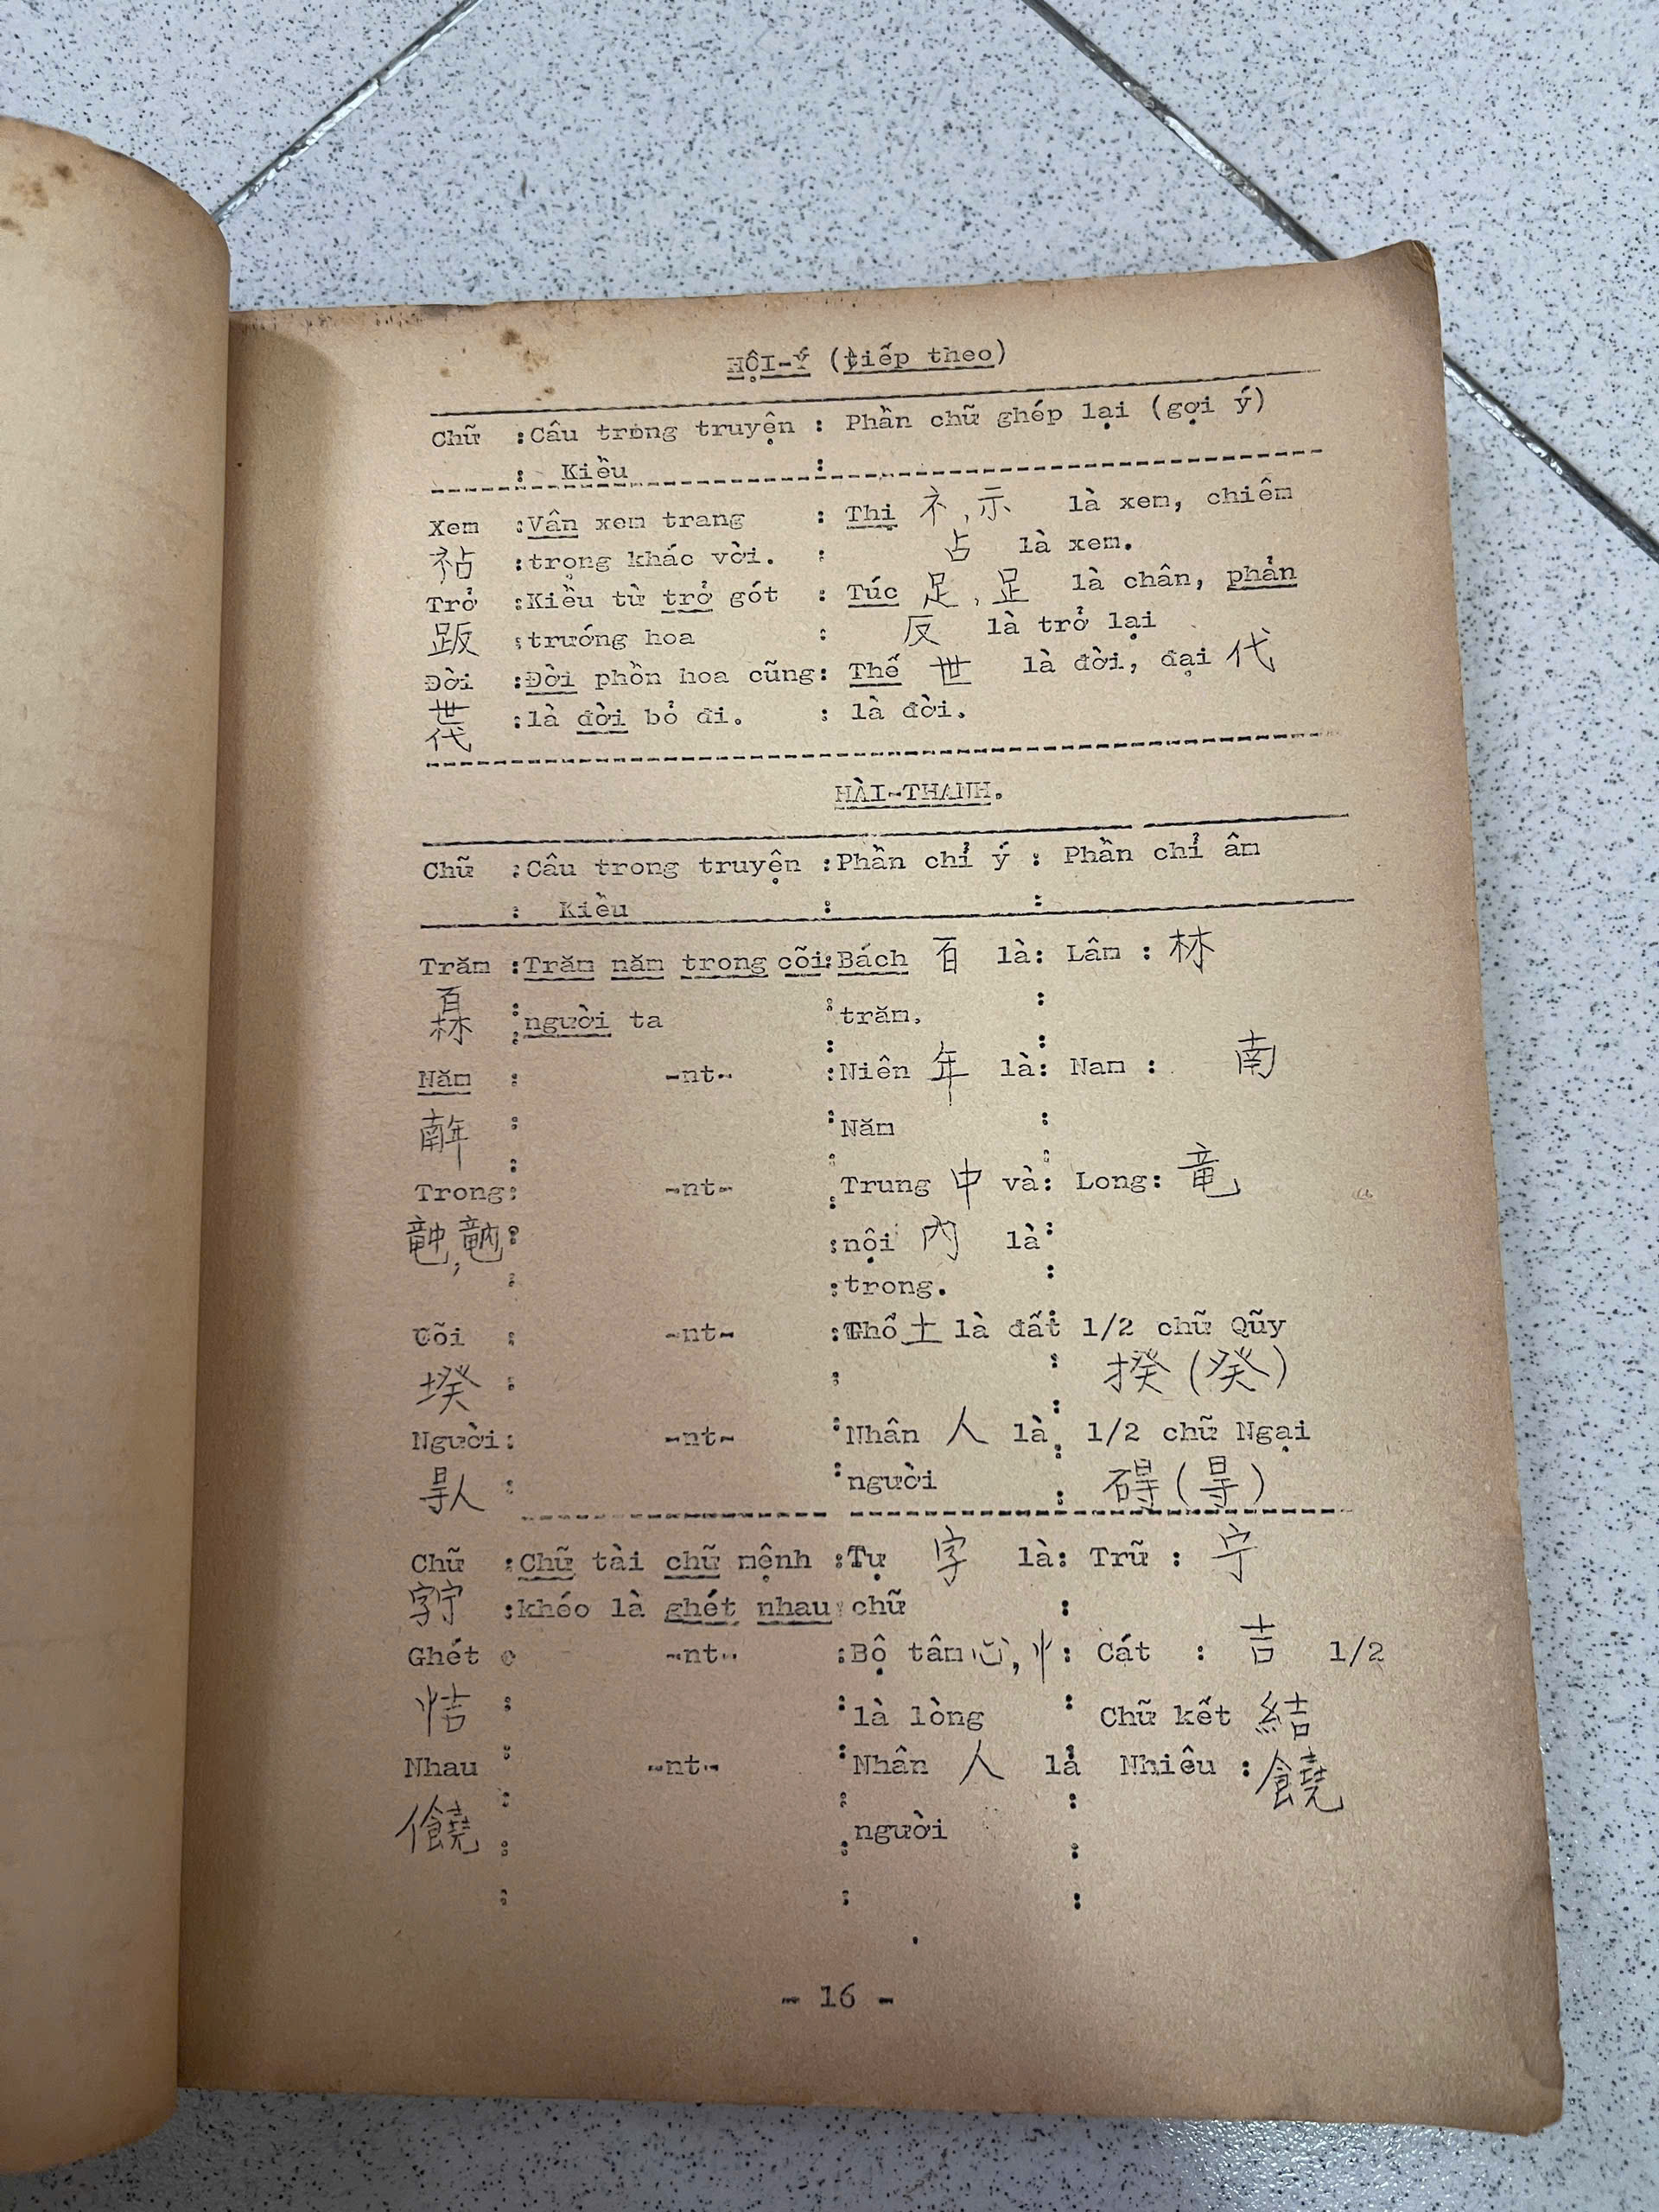 HỘI-Ý (tiếp theo)
Chữ :Câu trong truyện : Phần chữ ghép lại (gợi ý)
: Kiều :
Xem :Vân xem trang : Thị 礻,示 là xem, chiêm
袩 :trọng khác vời. : 占 là xem.
Trở :Kiều từ trở gót : Túc 足,𧾷 là chân, phản
䟦 :trướng hoa : 反 là trở lại
Đời :Đời phồn hoa cũng: Thế 世 là đời, đại 代
𠁀 :là đời bỏ đi. : là đời.
HÀI-THANH.
Chữ :Câu trong truyện :Phần chỉ ý : Phần chỉ âm
: Kiều : :
Trăm :Trăm năm trong cõi:Bách 百 là: Lâm : 林
𤾓 :người ta :trăm. :
Năm : -nt- :Niên 年 là: Nam : 南
𢆥 : :Năm :
Trong: -nt- :Trung 中 và: Long: 竜
𥪝, 𥪞 : :nội 內 là:
: :trong. :
Cõi : -nt- :Thổ 土 là đất: 1/2 chữ Qũy
𡎝 : : : 揆 (癸)
Người: -nt- :Nhân 人 là: 1/2 chữ Ngại
𠊛 : :người : 碍 (㝵)
Chữ :Chữ tài chữ mệnh :Tự 字 là: Trữ : 宁
𡦂 :khéo là ghét nhau: chữ :
Ghét : -nt- :Bộ tâm 心,忄: Cát : 吉 1/2
恄 : :là lòng : Chữ kết 結
Nhau : -nt- :Nhân 人 là: Nhiêu : 饒
𠑬 : :người :
- 16 -